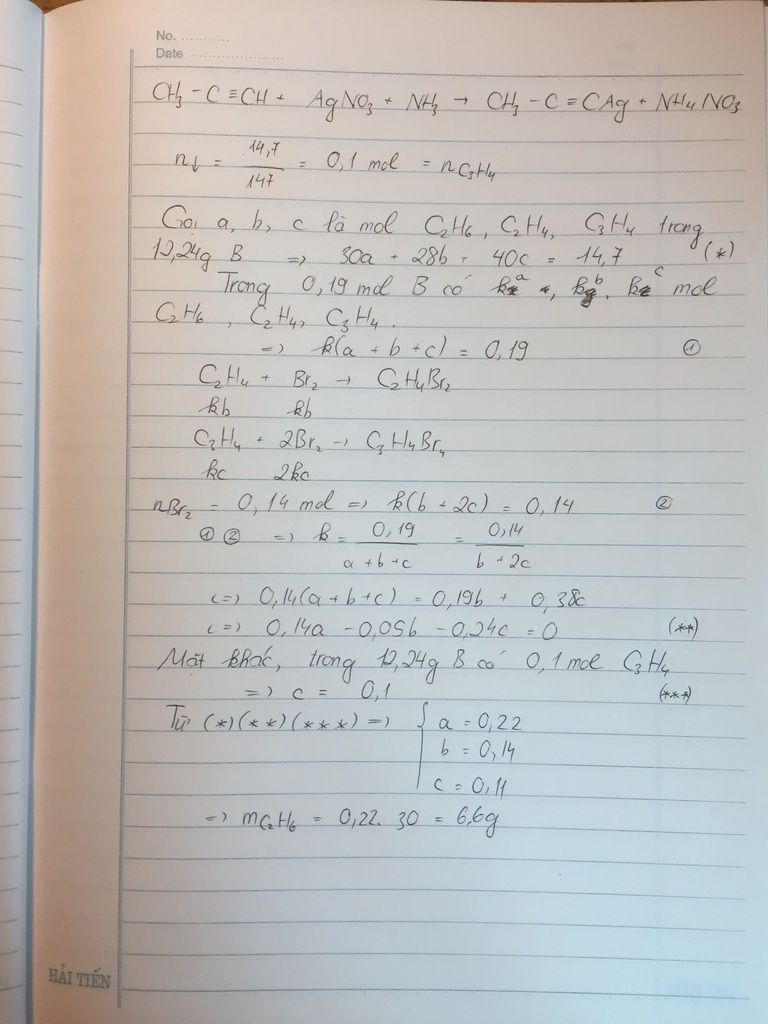 No. ...........
Date .....................
CH₃ - C ≡ CH + AgNO₃ + NH₃ → CH₃ - C ≡ CAg + NH₄NO₃
n↓ = 14,7/147 = 0,1 mol = nC₃H₄
Gọi a, b, c là mol C₂H₆, C₂H₄, C₃H₄ trong
12,24g B => 30a + 28b + 40c = 14,7 (*)
Trong 0,19 mol B có ka, kb, kc mol
C₂H₆, C₂H₄, C₃H₄.
=> k(a + b + c) = 0,19 ①
C₂H₄ + Br₂ → C₂H₄Br₂
kb kb
C₃H₄ + 2Br₂ → C₃H₄Br₄
kc 2kc
nBr₂ = 0,14 mol => k(b + 2c) = 0,14 ②
① ② => k = 0,19/(a + b + c) = 0,14/(b + 2c)
<=> 0,14(a + b + c) = 0,19b + 0,38c
<=> 0,14a - 0,05b - 0,24c = 0 (**)
Mặt khác, trong 12,24g B có 0,1 mol C₃H₄
=> c = 0,1 (***)
Từ (*)(**)(***) => { a = 0,22
b = 0,14
c = 0,11
=> mC₂H₆ = 0,22. 30 = 6,6g
HẢI TIẾN